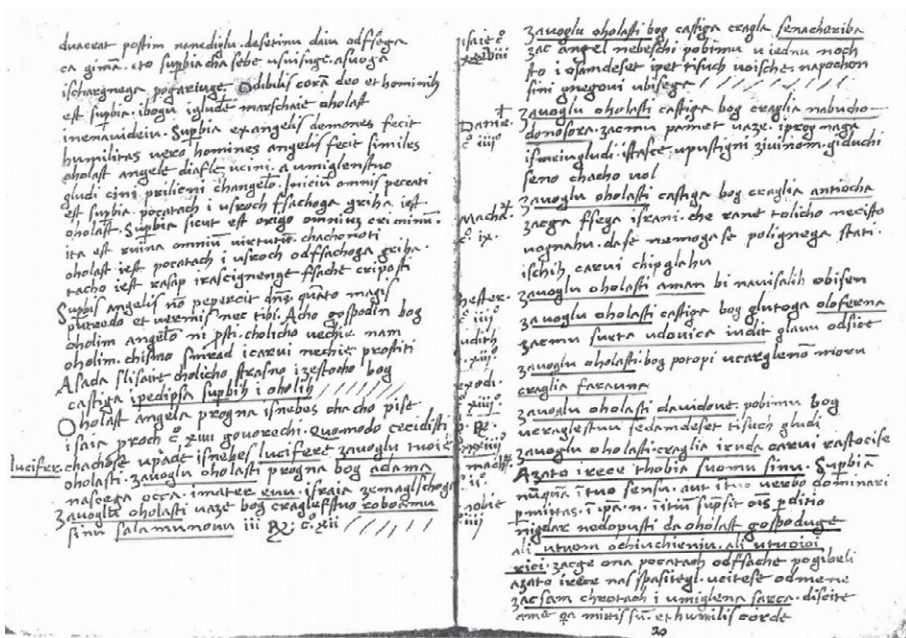 duacrat postim nanediglu. desetinu daiu odfsega
ca gimā. cto supbia cha sebe usuisuge. asuoga
ischargnega pogartuge. Odibilis corā deo et hominibꝫ
est supbia. ibogu igludē marschaie oholast
inenauideiu. Supbia ex angelis demones fecit
humilitas uero homines angelis fecit similes
oholast angele diafle ucini. a umiglenstuo
gludi cini prilicni changelō. Iniciū omnis peccati
est supbia. pocatach i usroch fsachoga griha iest
oholast. Supbia sicut est origo omniuȝ criminū.
ita est ruina omniū uirtutū. chachonoti
oholast iest pocatach i usroch odfsachoga griha.
tacho iest rasap irascignenge fsache criposti
Supbis angelis nō pepercit dns̄ quāto magis
putredo et uermis nec tibi. Acho gospodin bog
oholim angelō ni psti. cholicho uechie nam
oholim. chismo smrad icarui nechie prostiti
A sada slisaite cholicho strasno izestocho bog
castiga ipedipsa supbih i oholih
Oholast angela progna isnebes chacho pise
isaia proch c̊ xiiii gouorechi. Quomodo cecidisti
lucifere. chachose upade isnebes lucifere zauoglu tuoie
oholasti. zauoglu oholasti progna bog adama
nasega occa. imater euu. israia zemaglschoga
zauoglu oholasti uaze bog craglefstuo roboamu
sinu salamunouu iii R̄. c̊. xii
zauoglu oholasti bog castiga cragla senachoriba
isaie c̊ xxxviii
zac angel nebeschi pobimu u iednu noch
sto i osamdeset ipet tisuch uoische. napochon
sini gnegoui ubisega
zauoglu oholasti castiga bog craglia nabucho
Danie. c̊ iiii
donosora. zacmu pamet uaze. iprogmaga
ismeiugludi. istasce upustigni ziuinom. giduchi
seno chacho uol
zauoglu oholasti castiga bog craglia antiocha
Macha. c̊ ix.
zacga fsega israni. che rane tolicho necisto
uognahu. dase nemogase polignega stati.
ischih carui chipglahu
zauoglu oholasti aman bi nauisalih obisen
hester. c̊ iii
zauoglu oholasti castiga bog glutoga oloferna
iudith c̊ xiii
zacmu sueta udouica iudit glauu odsice
zauoglu oholasti bog potopi ucarglenō moru
exodi. c̊ xiiii
craglia farauna
zauoglu oholasti dauidoue. pobimu bog
ucraglestuu sedamdeset tisuch gludi
zauoglu oholasti. craglia iruda carui rastocise
Azato irece thobia suomu sinu. Supbiā
nūquā ituo sensu. aut ituo uerbo dominari
pmittas. i ipa. n. iitiū supsit ois pditio
nigdar nedopusti da oholast gospoduge
thobie c̊ iiii
ali utuom ochiuchieniu. ali utuoioi
rici. zacge ona pocatach odfsache pogibeli
azato irece nas spasitegl. ucitese odmene
zacsam chrotach i umiglena sarca. discite
ame qa mitis sū. et humilis corde
20